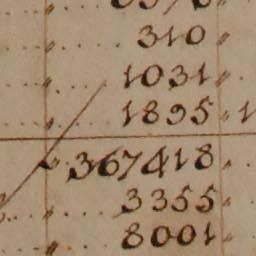 310
1031
1895
367418
3355
8001